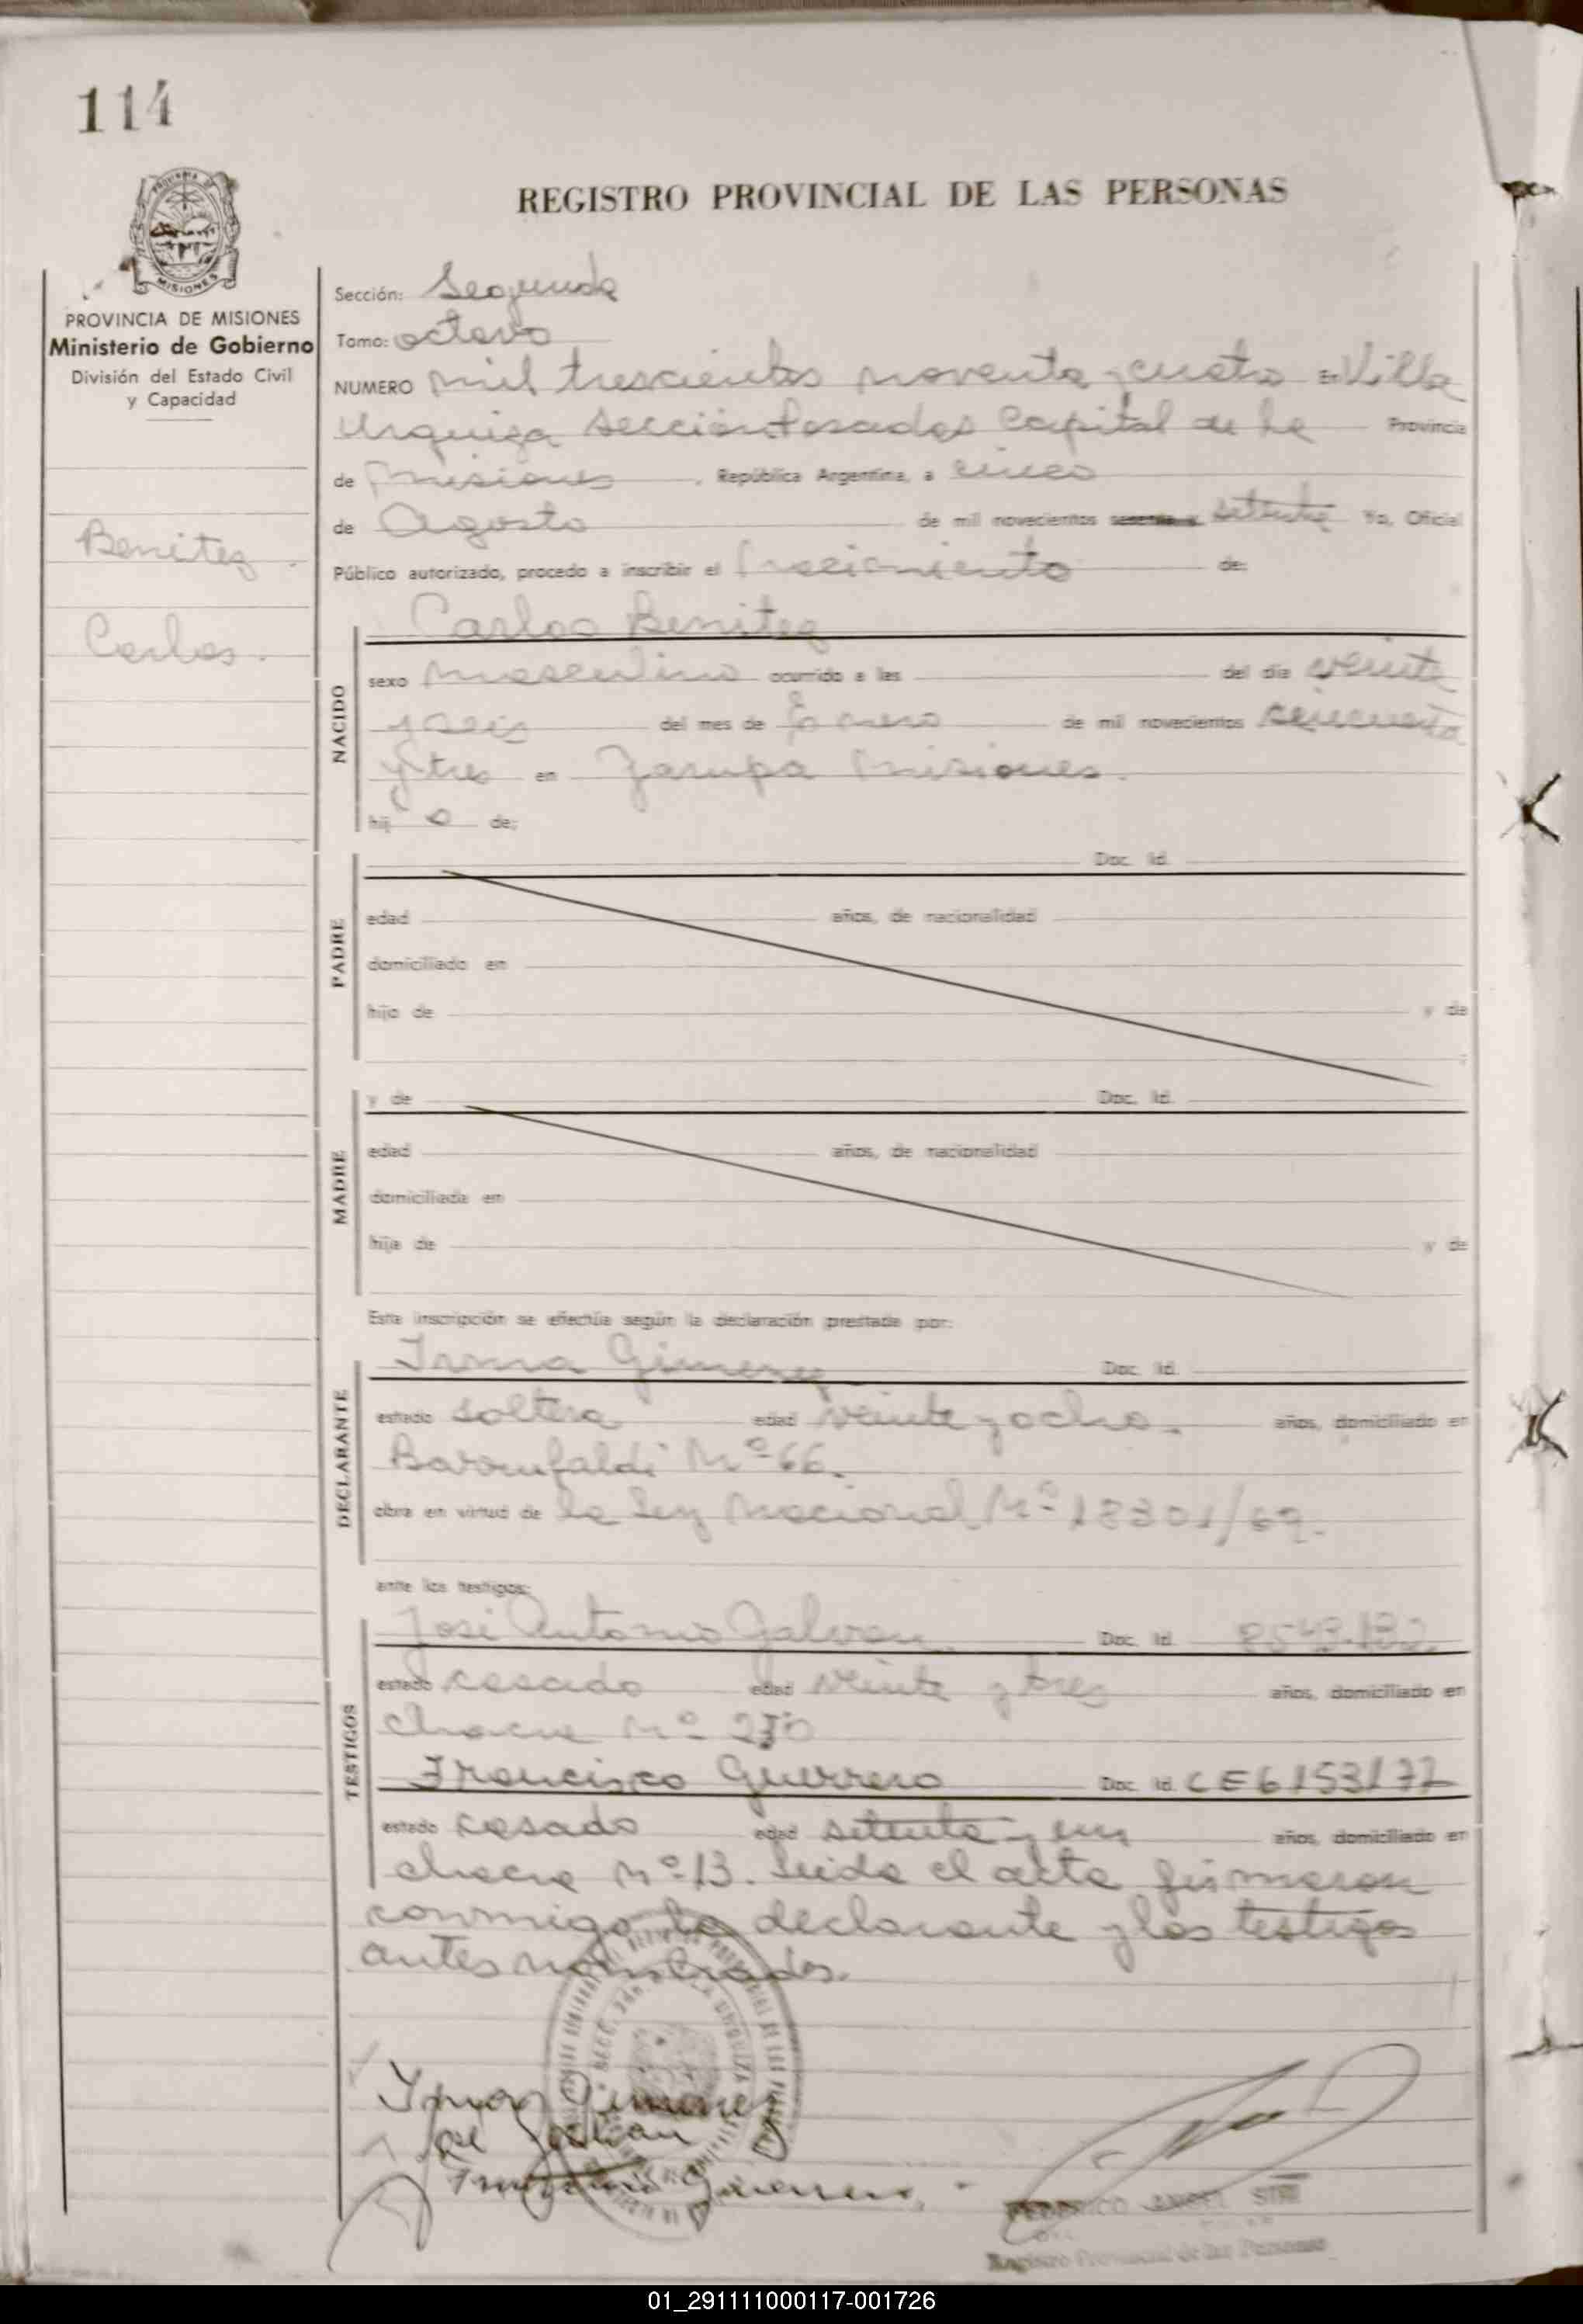 114
PROVINCIA DE MISIONES
Ministerio de Gobierno
División del Estado Civil
y Capacidad
Benitez
Carlos.
REGISTRO PROVINCIAL DE LAS PERSONAS
Sección: Segunda
Tomo: octavo
NUMERO mil trescientos noventa y cuatro En Villa
Urquiza Sección Posadas Capital de la Provincia
de Misiones, República Argentina, a cinco
de Agosto de mil novecientos sesenta y setenta Yo, Oficial
Público autorizado, procedo a inscribir el nacimiento de:
Carlos Benitez
NACIDO
sexo masculino ocurrido a las del día veinte
y seis del mes de Enero de mil novecientos cincuenta
y tres en Garupa Misiones.
hij o de:
PADRE
Doc. Id.
edad años, de nacionalidad
domiciliado en
hijo de y de
MADRE
y de Doc. Id.
edad años, de nacionalidad
domiciliada en
hija de y de
Esta inscripción se efectúa según la declaración prestada por:
DECLARANTE
Irma Gimenez Doc. Id.
estado soltera edad veinte y ocho. años, domiciliado en
Barrufaldi Nº 66.
obra en virtud de la ley Nacional Nº 18301/69.
ante los testigos:
TESTIGOS
José Antonio Galvan. Doc. Id.
estado casado edad veinte y tres años, domiciliado en
chacra Nº
Francisco Guerrero Doc. Id. CE6153177
estado casado edad setenta y un años, domiciliado en
chacra Nº 13. Leida el acta firmaron
conmigo la declarante y los testigos
antes nombrados.
Irma Gimenez
José Galvan
FEDERICO ANGEL
Registro Provincial de las Personas
01_291111000117-001726